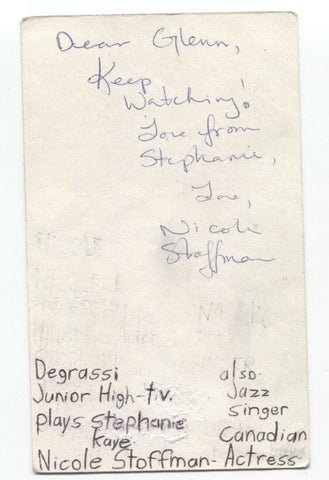 Dear Glenn,
Keep
Watching!
Love from
Stephanie,
Love,
Nicole
Stoffman
Degrassi
Junior High-t.v.
plays Stephanie
Kaye
also
Jazz
singer
Canadian
Nicole Stoffman- Actress